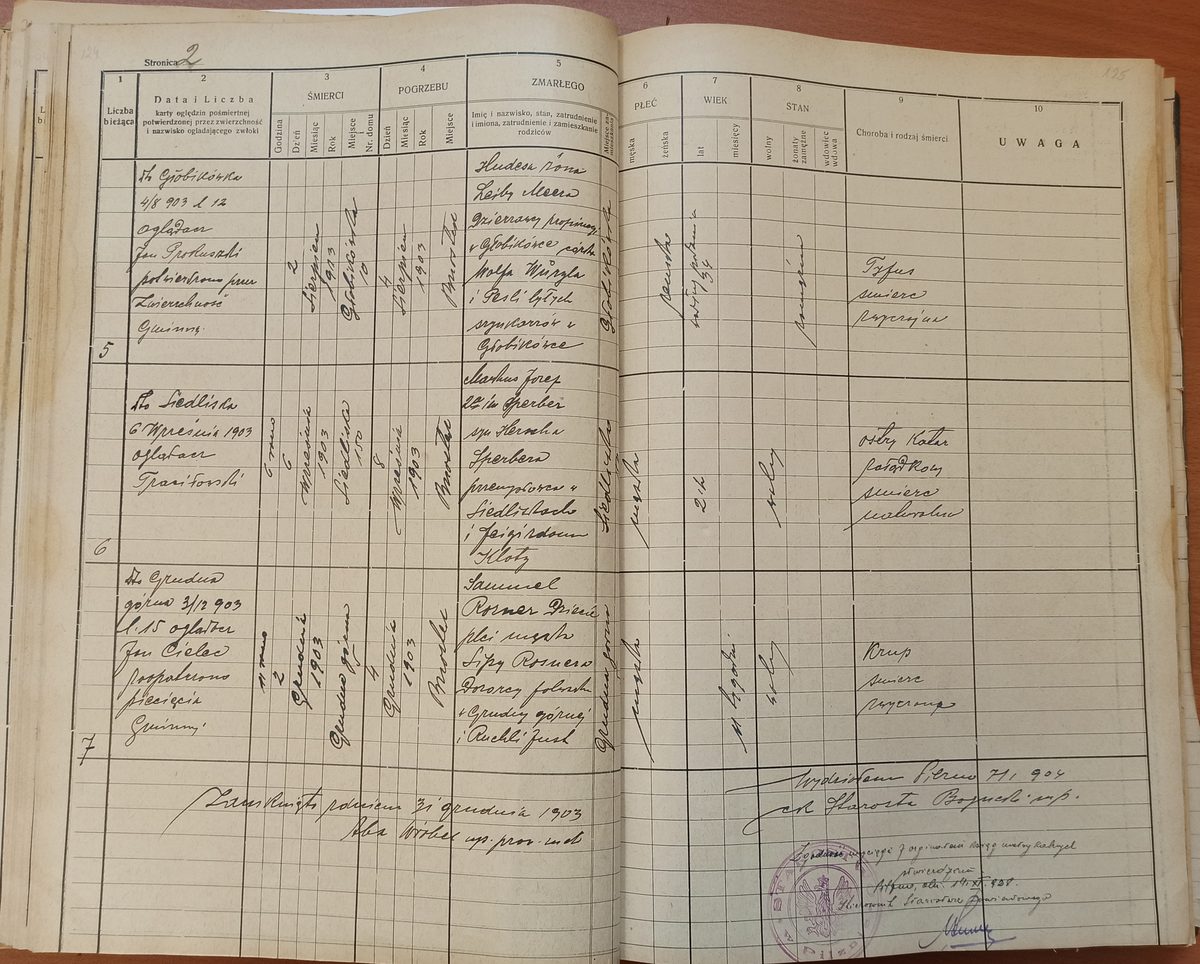 Stronica 2
1
2
3
4
5
6
7
8
9
10
Liczba bieżąca
Data i Liczba
karty oględzin pośmiertnej
potwierdzonej przez zwierzchność
i nazwisko oglądającego zwłoki
ŚMIERCI
Godzina
Dzień
Miesiąc
Rok
Miejsce
Nr. domu
POGRZEBU
Dzień
Miesiąc
Rok
Miejsce
ZMARŁEGO
Imię i nazwisko, stan, zatrudnienie
i imiona, zatrudnienie i zamieszkanie
rodziców
PŁEĆ
męska
żeńska
WIEK
lat
miesięcy
STAN
wolny
żonaty
zamężne
wdowiec
wdowa
Choroba i rodzaj śmierci
UWAGA
5
Głobikówka
4/8 903 l 12
oglądacz
Jan Prokuszki
potwierdzono przez
Zwierzchność
Gminną
2
Sierpień
1903
Głobikówka
10
4
Sierpień
1903
Brostek
Hudesa żona
Leiby Meera
Dzierżawcy propinacyi
w Głobikówce córka
Wolfa Würzla
i Pesli byłych
szynkarzów w
Głobikówce
Głobikówka
żeńska
34
zamężna
Tyfus
śmierć
zwyczajna
6
Siedliska
6 Września 1903
oglądacz
6 rano
6
Września
1903
Siedliska
150
8
Września
1903
Brostek
Markus Josef
2ga im Sperber
syn Herscha
Sperbera
przemysłowca w
Siedliskach
i
Klotz
Siedliska
męska
wolny
ostry Katar
żołądkowy
śmierć
naturalna
7
Grudna
górna 3/12 903
l. 15 oglądacz
Jan Cielec
zaopatrzono
pieczęcią
Gminną
11 rano
2
Grudnia
1903
Grudna górna
4
Grudnia
1903
Brostek
Samuel
Rosner Dziecię
płci męska
Lipy Rosnera
Dozorcy folwarku
w Grudny górnej
i Ruchli Just
Grudna górna
męska
11 tygodni
wolny
Krup
śmierć
zwyczajna
Zamknięto z dniem 31 grudnia 1903
Aba Wróbel mp. prow. metr
Widziałem Pilzno 7/1 904
ck Starosta Bogucki mp.
Zgodność wyciągu z oryginałem ksiąg metrykalnych
stwierdzam
Pilzno, dn. 14. XI. 928.
Kierownik Starostwa Powiatowego